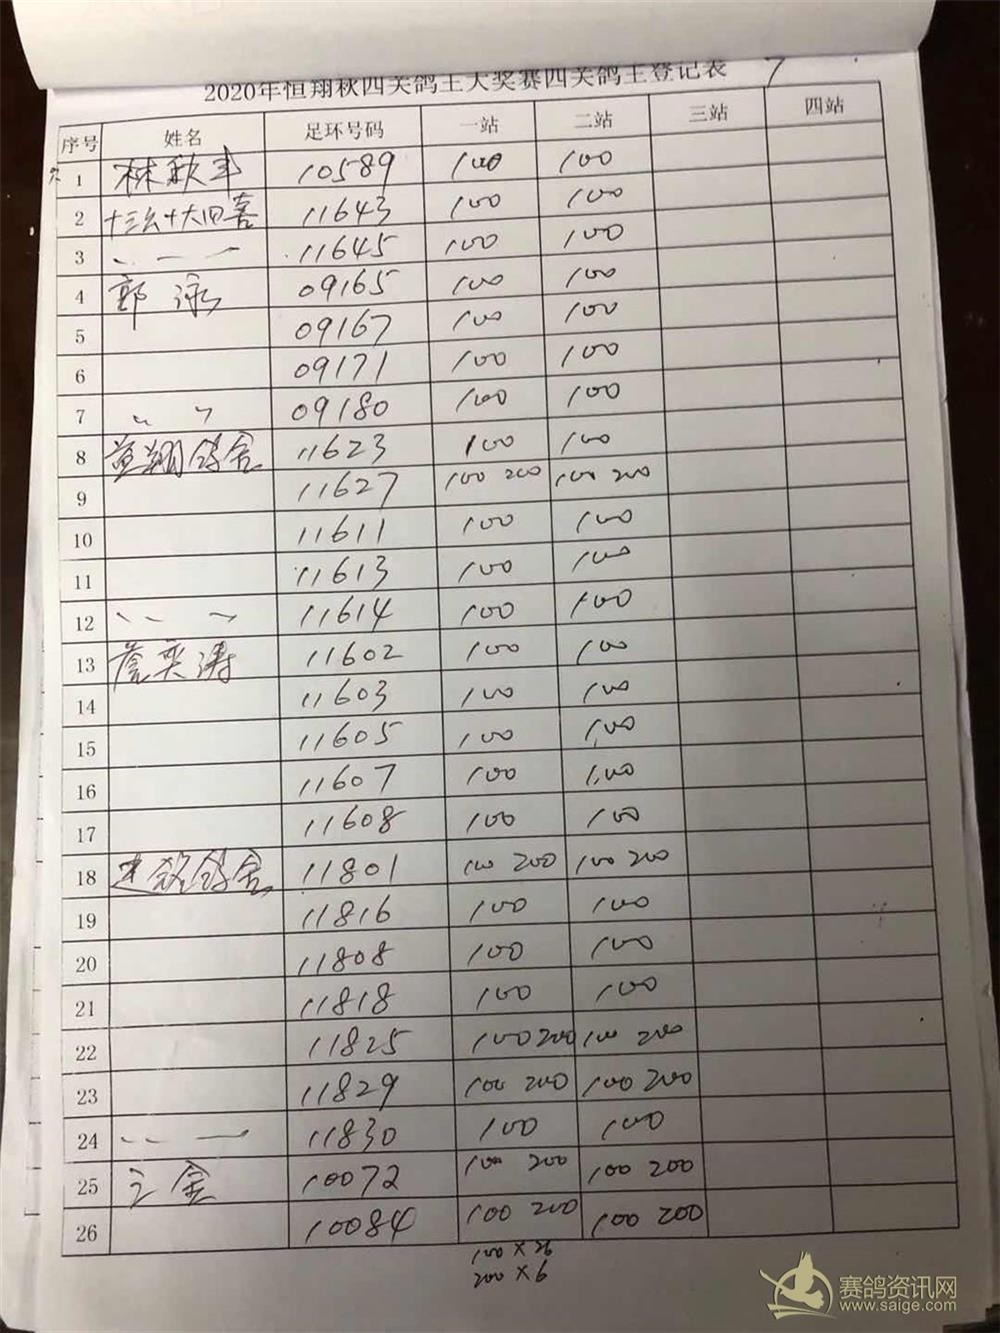 2020年恒翔秋四关鸽王大奖赛四关鸽王登记表 7
序号 姓名 足环号码 一站 二站 三站 四站
1 林秋丰 10589 100 100
2 十三幺十大四喜 11643 100 100
3 〃 — 〃 11645 100 100
4 郭泳 09165 100 100
5 09167 100 100
6 09171 100 100
7 〃 〃 09180 100 100
8 翔鸽舍 11623 100 100
9 11627 100 200 100 200
10 11611 100 100
11 11613 100 100
12 〃 〃 11614 100 100
13 詹奕涛 11602 100 100
14 11603 100 100
15 11605 100 100
16 11607 100 100
17 11608 100 100
18 鸽舍 11801 100 200 100 200
19 11816 100 100
20 11808 100 100
21 11818 100 100
22 11825 100 200 100 200
23 11829 100 200 100 200
24 〃 〃 11830 100 100
25 金 10072 100 200 100 200
26 10084 100 200 100 200
100 × 26
200 × 6
赛鸽资讯网
www.saige.com